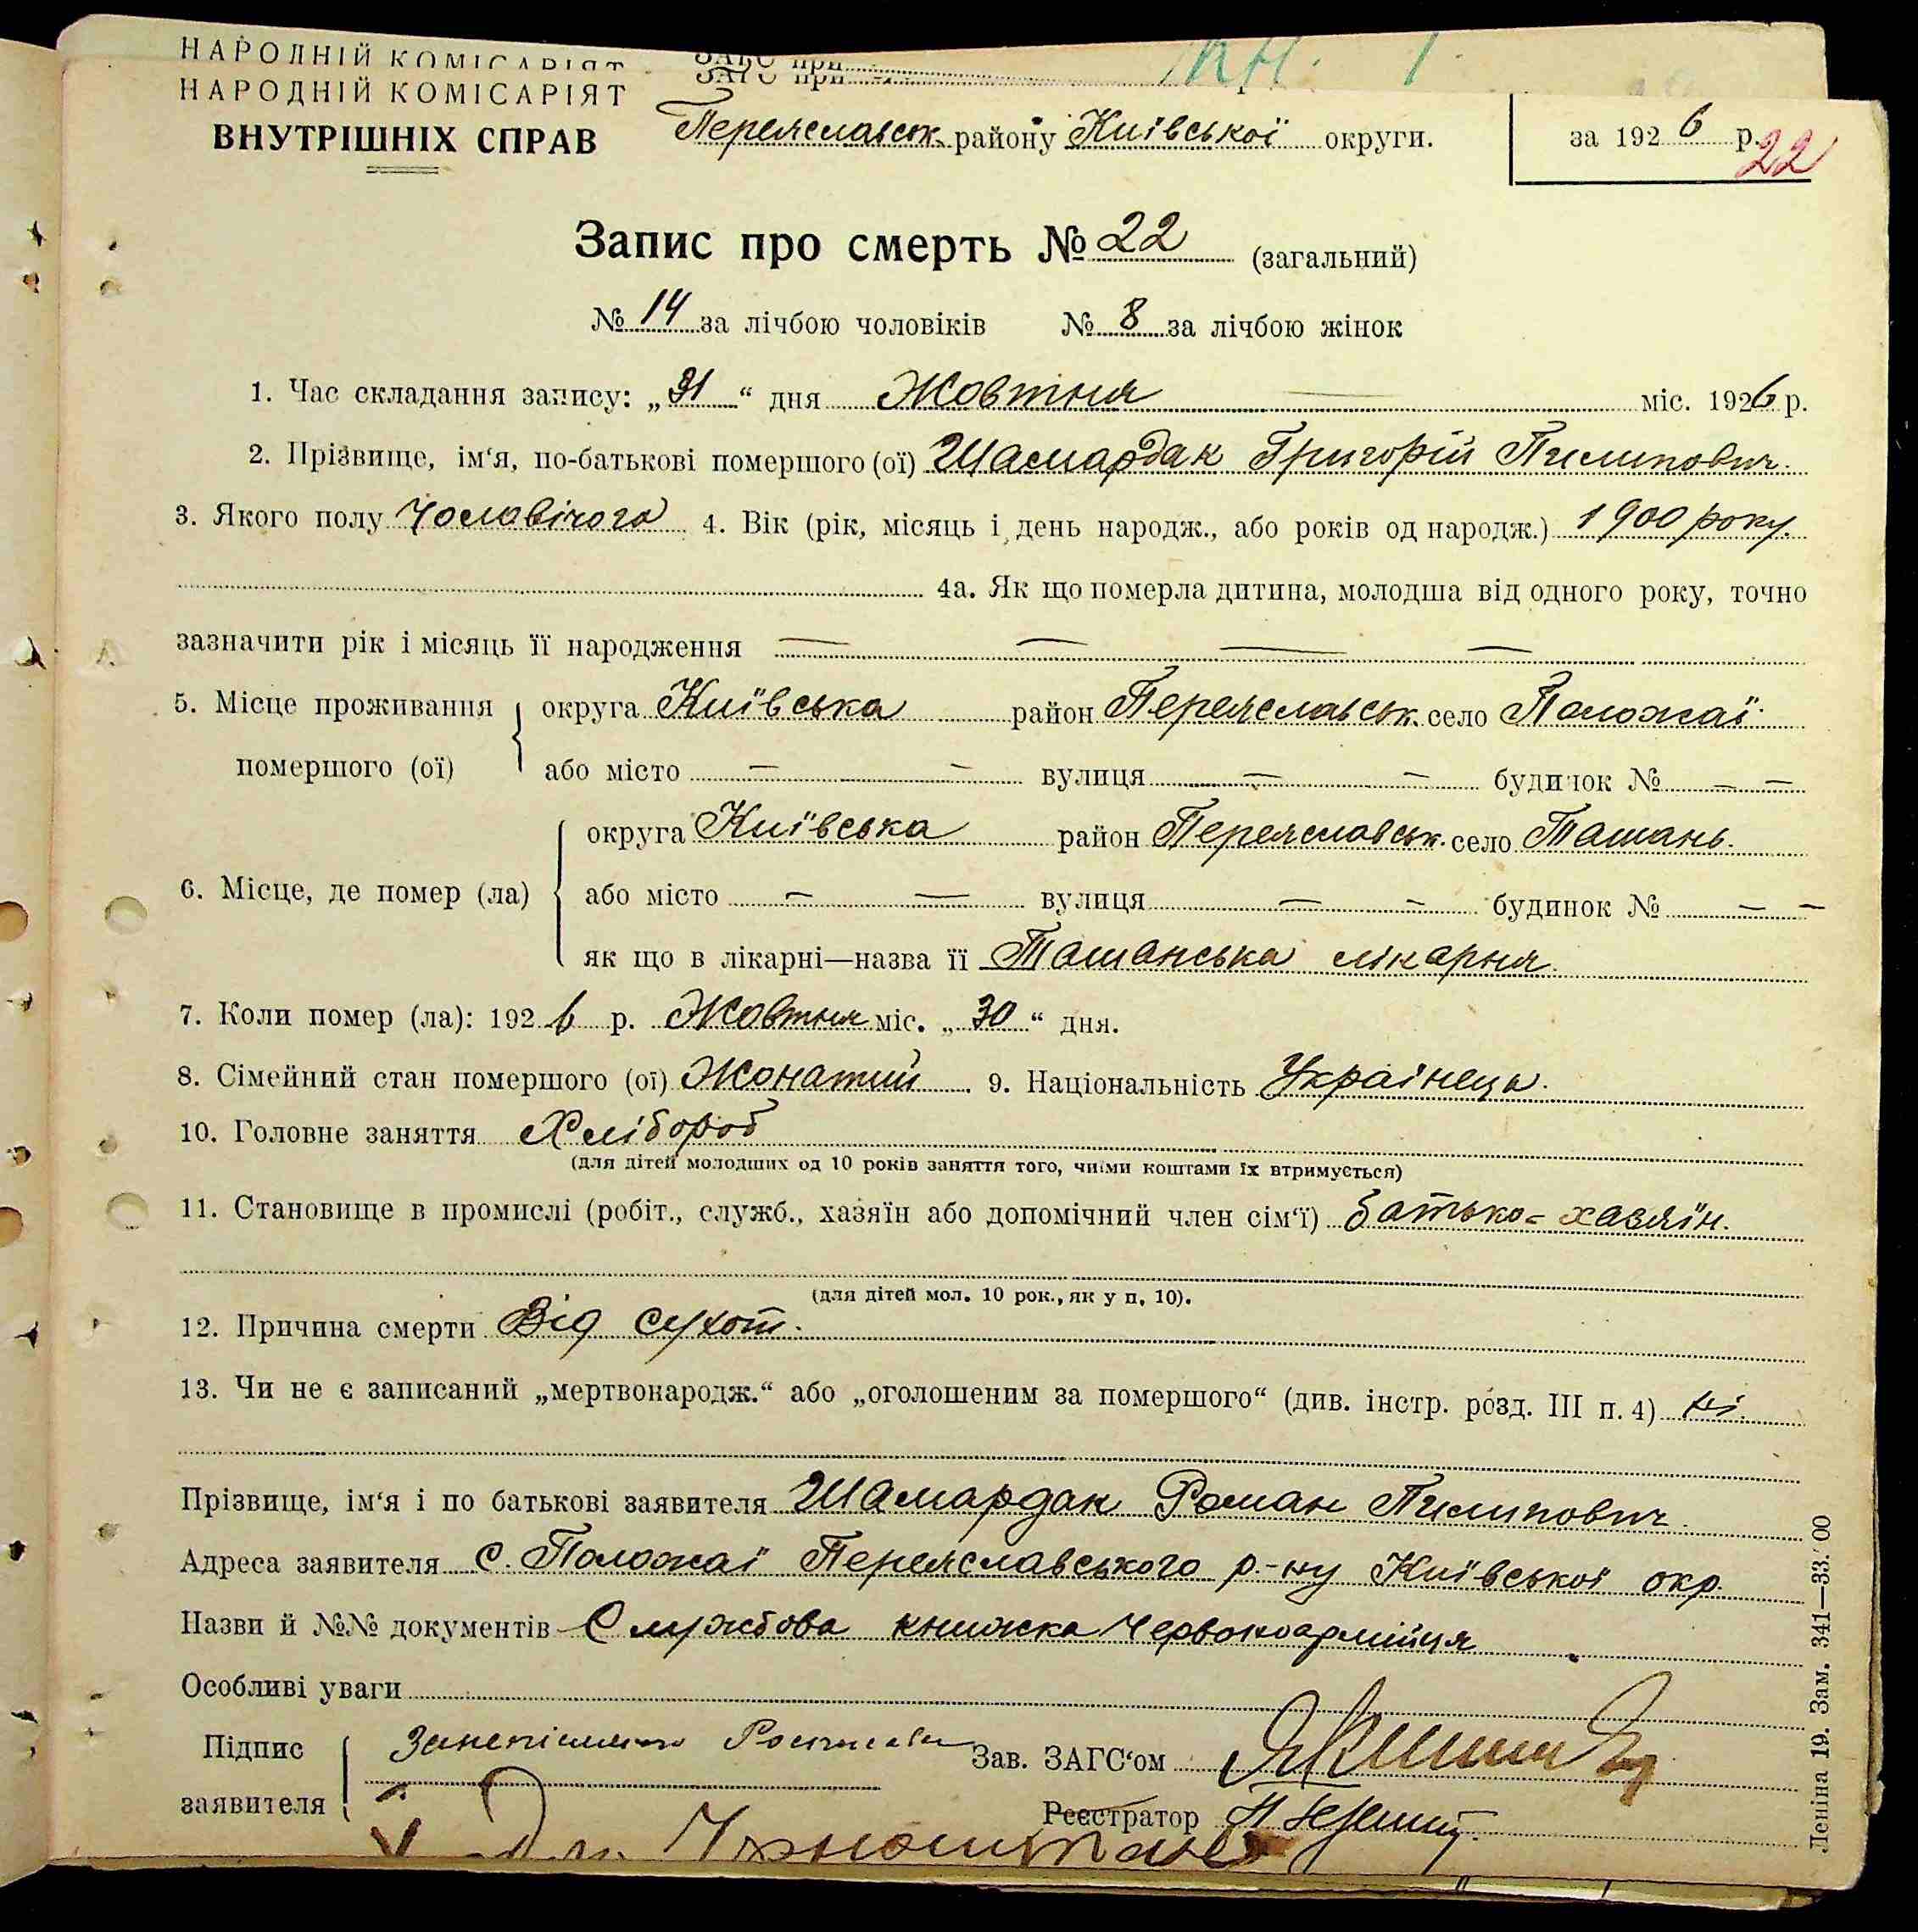 НАРОДНІЙ КОМІСАРІЯТ ЗАГС при кн. 1
НАРОДНІЙ КОМІСАРІЯТ ЗАГС при
ВНУТРІШНІХ СПРАВ Переяславськ. району Київської округи. за 1926 р. 22
Запис про смерть № 22 (загальний)
№ 14 за лічбою чоловіків № 8 за лічбою жінок
1. Час складання запису: „31“ дня Жовтня міс. 1926 р.
2. Прізвище, ім‘я, по-батькові помершого (ої) Шамардак Григорій Пилипович.
3. Якого полу Чоловічого 4. Вік (рік, місяць і день народж., або років од народж.) 1900 року.
4а. Як що померла дитина, молодша від одного року, точно
зазначити рік і місяць її народження — — — —
5. Місце проживання помершого (ої) округа Київська район Переяславськ. село Положаї
або місто — — вулиця — — будинок № — —
6. Місце, де помер (ла) округа Київська район Переяславськ. село Ташань.
або місто — — вулиця — — будинок № — —
як що в лікарні—назва її Ташанська лікарня
7. Коли помер (ла): 1926 р. Жовтня міс. „30“ дня.
8. Сімейний стан помершого (ої) Жонатий 9. Національність Українець.
10. Головне заняття Хлібороб
(для дітей молодших од 10 років заняття того, чиїми коштами їх втримується)
11. Становище в промислі (робіт., служб., хазяїн або допомічний член сім‘ї) батько-хазяїн.
(для дітей мол. 10 рок., як у п. 10).
12. Причина смерти Від сухот.
13. Чи не є записаний „мертвонародж.“ або „оголошеним за помершого“ (див. інстр. розд. III п. 4) ні.
Прізвище, ім‘я і по батькові заявителя Шамардак Роман Пилипович
Адреса заявителя с. Положаї Переяславського р-ну Київської окр.
Назви й №№ документів Службова книжка Червоноармійця
Особливі уваги
Підпис заявителя
Зав. ЗАГС‘ом
Реєстратор
Леніна 19. Зам. 341—33.